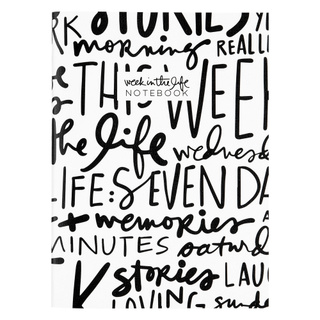 RK STORIES
morning REALL
THIS WEE
week in the life
NOTEBOOK
the life
wednes
LIFE: SEVEN DA
+ memories
MINUTES saturd
stories LAU
LOVING sunda